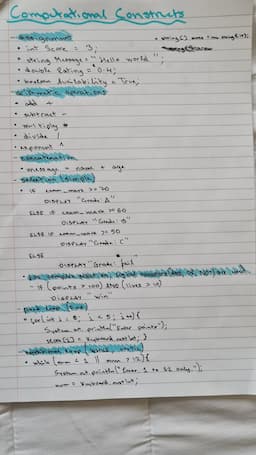 Computational Constructs
assignment
• int Score = 9;
• string [] name = new string [];
• string Message = "Hello world";
• double Rating = 0.4;
• boolean Availability = True;
arithmetic operations
• add +
• subtract -
• multiply *
• divide /
• exponent ^
concatenation
• message = name + age
selection (simple)
• IF exam_mark >= 70
DISPLAY "Grade: A"
ELSE IF exam_mark >= 60
DISPLAY "Grade: B"
ELSE IF exam_mark >= 50
DISPLAY "Grade: C"
ELSE
DISPLAY "Grade: fail"
- IF (points > 100) AND (lives > 1)
DISPLAY "Win"
fixed loop
• for (int i = 0; i < 5; i++) {
System.out.println("Enter points");
score [i] = Keyboard.nextInt; }
conditional loop
• while (num < 1 || num > 12) {
System.out.println("Enter 1 to 12 only.");
num = Keyboard.nextInt;